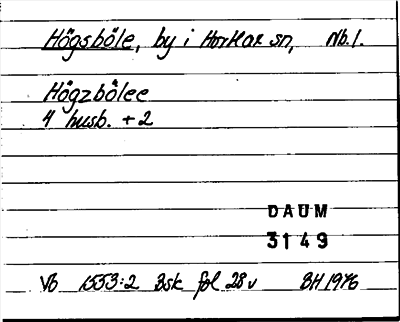 Högsböle, by i Hortlax sn, Nb.l.
Högzbölee
4 husb. + 2
DAUM
3149
Vb 1553:2 Bsk fol 28v BH 1976